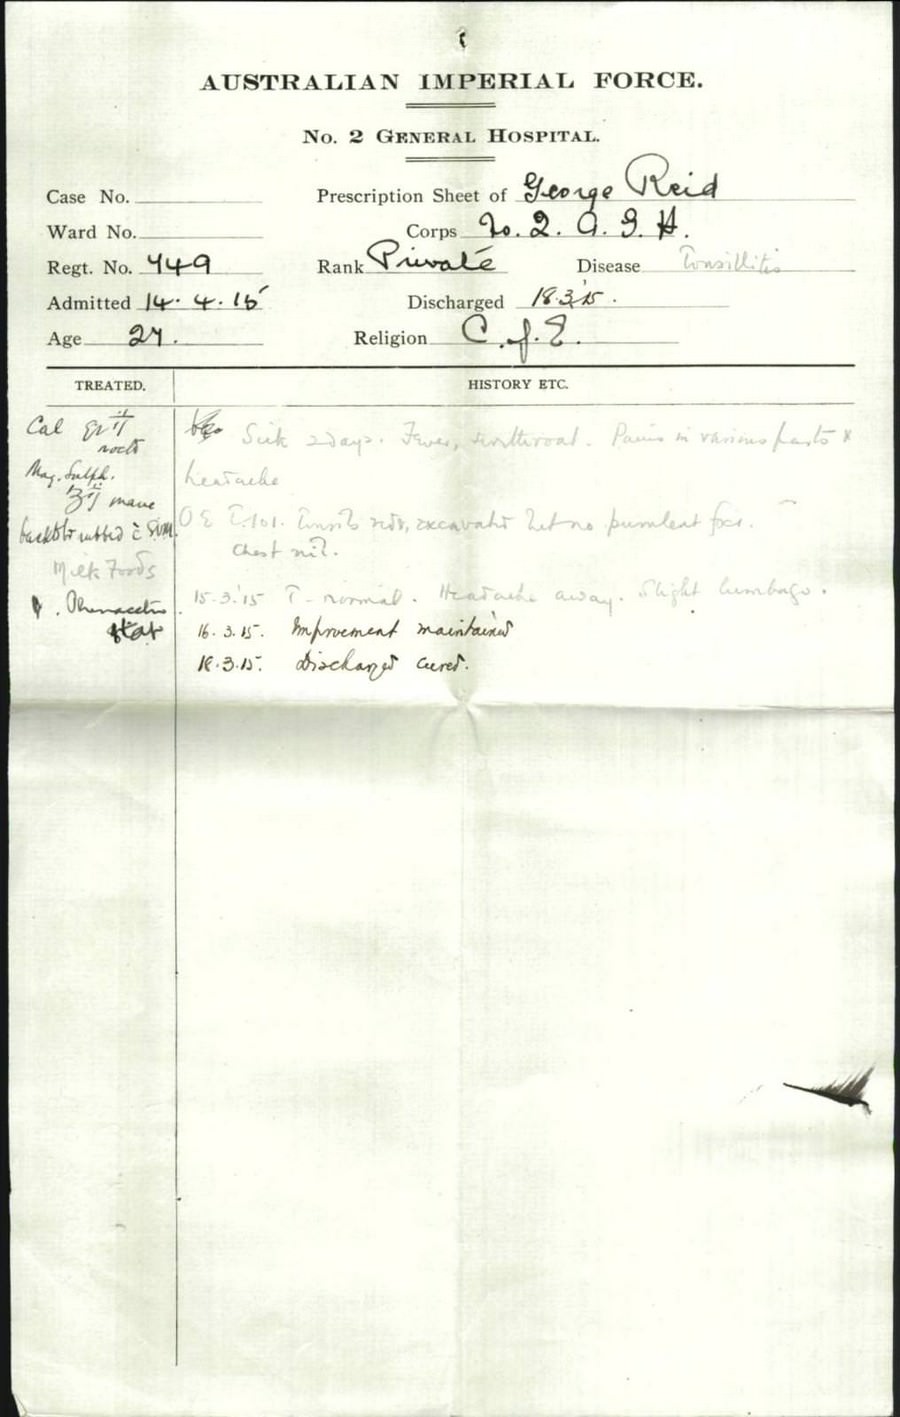 AUSTRALIAN IMPERIAL FORCE.
No. 2 GENERAL HOSPITAL.
Case No. Prescription Sheet of George Reid
Ward No. Corps No. 2. A. G. H.
Regt. No. 449 Rank Private Disease Tonsillitis
Admitted 14. 4. 15 Discharged 18.3.15.
Age 27. Religion C. of E.
TREATED. HISTORY ETC.
Cal gr
nocte
Sick 2 days. Fever, sore throat. Pains in various parts &
Mag. Sulph.
headache
mane
back to be rubbed c
O E T. 101. Tonsils red, excavated but no purulent foci.
Chest nil.
Milk Foods
15.3.15 T. normal. Headache away. Slight lumbago.
Phenacetin
stat
16.3.15. Improvement maintained
18.3.15. Discharged cured.